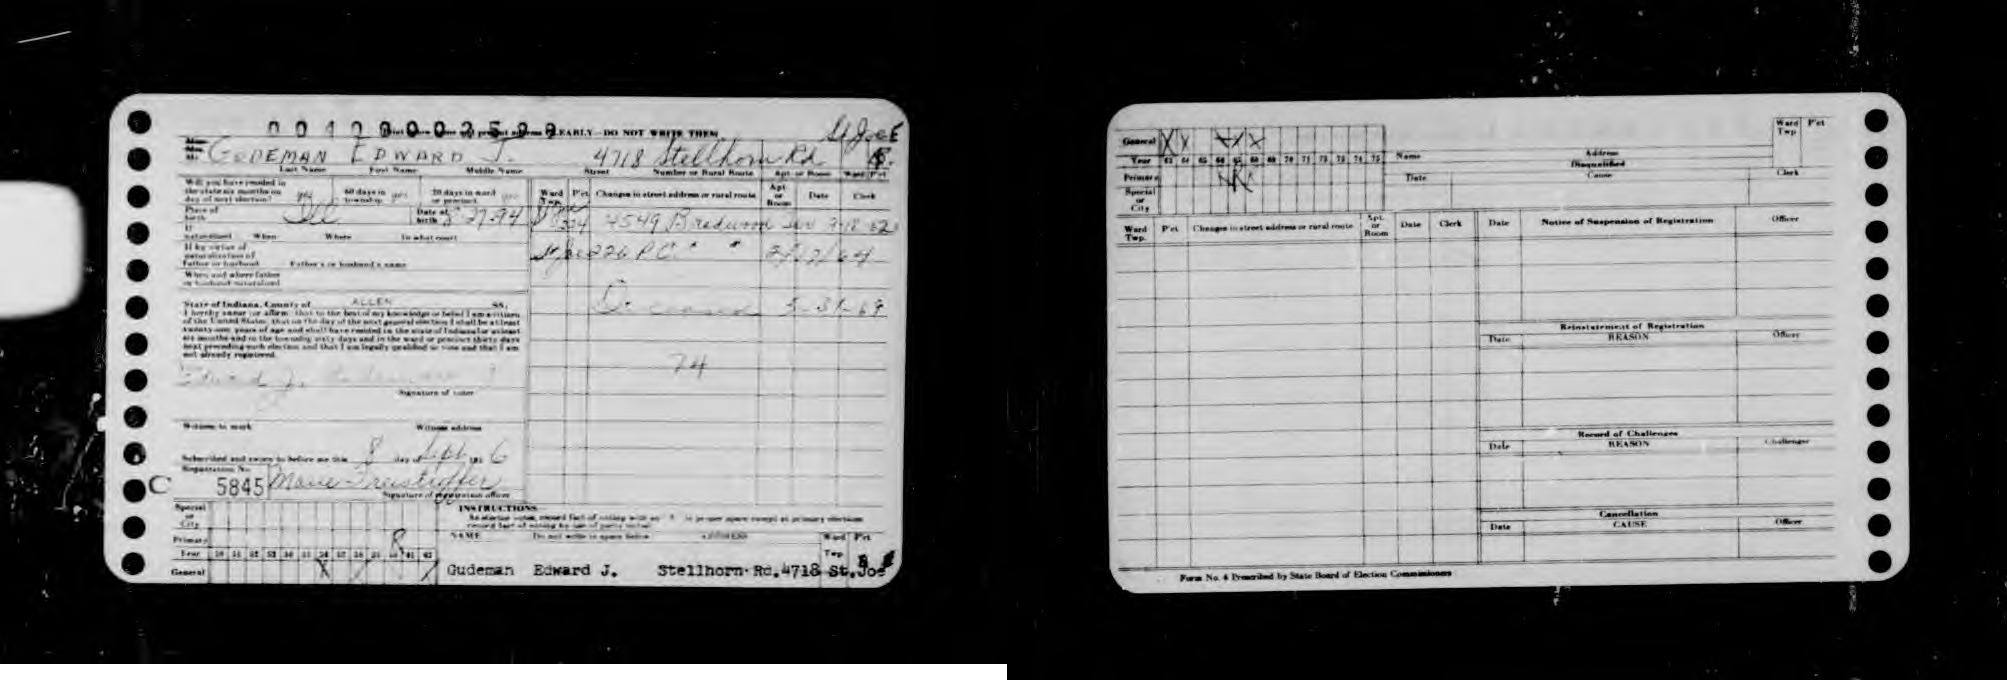 CLEARLY—DO NOT WRITE THEM
St Joe E
GUDEMAN EDWARD J. 4718 Stellhorn Rd
Last Name First Name Middle Name Street Number or Rural Route Apt or Room Ward P'ct
Will you have resided in
the state six months on
day of next election? yes 60 days in
township yes 30 days in ward
or precinct yes
Ward
Twp. P'ct Changes in street address or rural route Apt
or
Room Date Clerk
Place of
birth Ill Date of
birth 5-27-94
4549 7-18-62
If
naturalized When Where In what court
If by virtue of
naturalization of
Father or husband Father's or husband's name
St Joe 226 P.C. " " 2/17/64
When and where father
or husband naturalized
State of Indiana, County of ALLEN SS.
Deceased 5-31-69
I hereby swear (or affirm) that to the best of my knowledge or belief I am a citizen
of the United States, that on the day of the next general election I shall be at least
twenty-one years of age and shall have resided in the state of Indiana for at least
six months and in the township sixty days and in the ward or precinct thirty days
next preceding such election and that I am legally qualified to vote and that I am
not already registered.
74
Edward J. Gudeman
Signature of voter
Witness to mark Witness address
Subscribed and sworn to before me this 8 day of Sept 6
Registration No.
C 5845 Marie
Signature of registration officer
Special
or
City
INSTRUCTIONS
Primary R
NAME Do not write in space below ADDRESS Ward P'ct
Twp
Year 50 51 52 53 54 55 56 57 58 59 60 61 62
General X / /
Gudeman Edward J. Stellhorn Rd. 4718 St. Joe
General X X X X X
Year 63 64 65 66 67 68 69 70 71 72 73 74 75
Primary
Special
or
City
Name Address
Ward
Twp P'ct
Disqualified
Date Cause Clerk
Ward
Twp. P'ct Changes in street address or rural route Apt.
or
Room Date Clerk
Date Notice of Suspension of Registration Officer
Reinstatement of Registration
Date REASON Officer
Record of Challenges
Date REASON Challenger
Cancellation
Date CAUSE Officer
Form No. 4 Prescribed by State Board of Election Commissioners